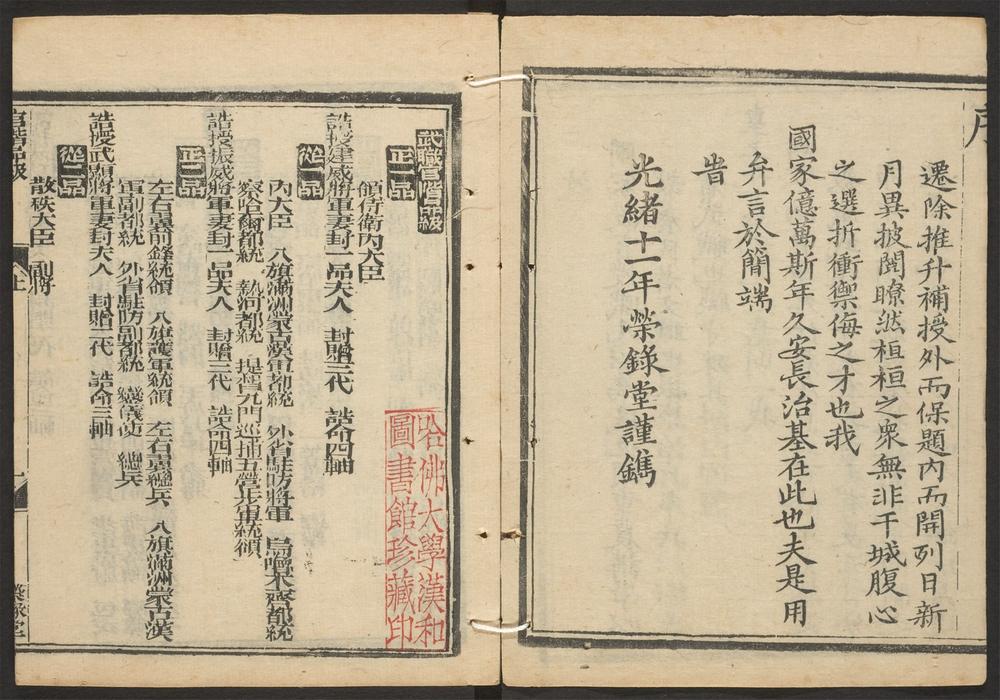 序
遷除推升補授外而保題內而開列日新
月異披閱瞭然桓桓之衆無非干城腹心
之選折衝禦侮之才也我
國家億萬斯年久安長治基在此也夫是用
弁言於簡端
旹
光緒十一年榮錄堂謹鐫
武職官階品級
正一品
領侍衛內大臣
誥授建威將軍妻封一品夫人 封贈三代 誥命四軸
從一品
內大臣 八旗滿洲蒙古漢軍都統 外省駐防將軍 烏嚕木齊都統
察哈爾都統 熱河都統 提督九門巡捕五營步軍統領
誥授振威將軍妻封一品夫人 封贈三代 誥命四軸
正二品
左右翼前鋒統領 八旗護軍統領 左右翼總兵 八旗滿洲蒙古漢
軍副都統 外省駐防副都統 鑾儀使 總兵
誥授武顯將軍妻封夫人 封贈二代 誥命三軸
從二品
散秩大臣 副將
官階品級 上 榮錄堂
哈佛大學漢和
圖書館珍藏印